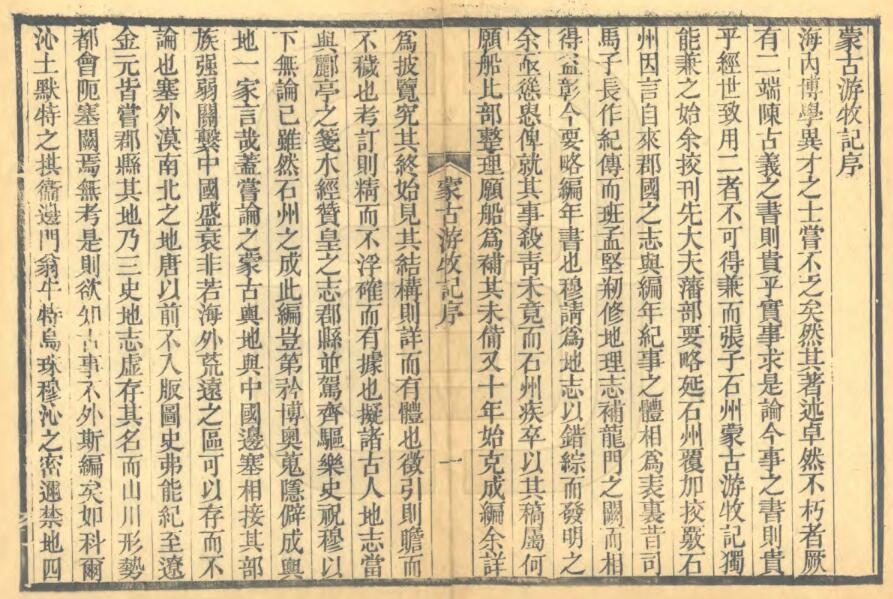 蒙古游牧記序
海內博學異才之士嘗不乏矣然其著述卓然不朽者厥
有二端陳古義之書則貴乎實事求是論今事之書則貴
乎經世致用二者不可得兼而張子石州蒙古游牧記獨
能兼之始余挍刊先大夫藩部要略延石州覆加挍覈石
州因言自來郡國之志與編年紀事之體相為表裏昔司
馬子長作紀傳而班孟堅剏修地理志補龍門之闕而相
得益彰今要略編年書也穆請為地志以錯綜而發明之
余亟慫恿俾就其事殺青未竟而石州疾卒以其稿屬何
願船比部整理願船為補其未備又十年始克成編余詳
蒙古游牧記序
一
為披覽究其終始見其結構則詳而有體也徵引則贍而
不穢也考訂則精而不浮確而有據也擬諸古人地志當
與酈亭之箋水經贊皇之志郡縣並駕齊驅樂史祝穆以
下無論已雖然石州之成此編豈第矜博奧蒐隱僻成輿
地一家言哉蓋嘗論之蒙古輿地與中國邊塞相接其部
族强弱關繫中國盛衰非若海外荒遠之區可以存而不
論也塞外漠南北之地唐以前不入版圖史弗能紀至遼
金元皆嘗郡縣其地乃三史地志虛存其名而山川形勢
都會阨塞闕焉無考是則欲知古事不外斯編矣如科爾
沁土默特之拱衞邊門翁牛特烏珠穆沁之密邇禁地四